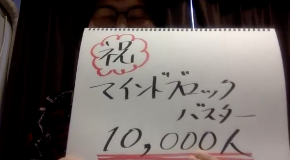 祝
マインドブロック
バスター
10,000人